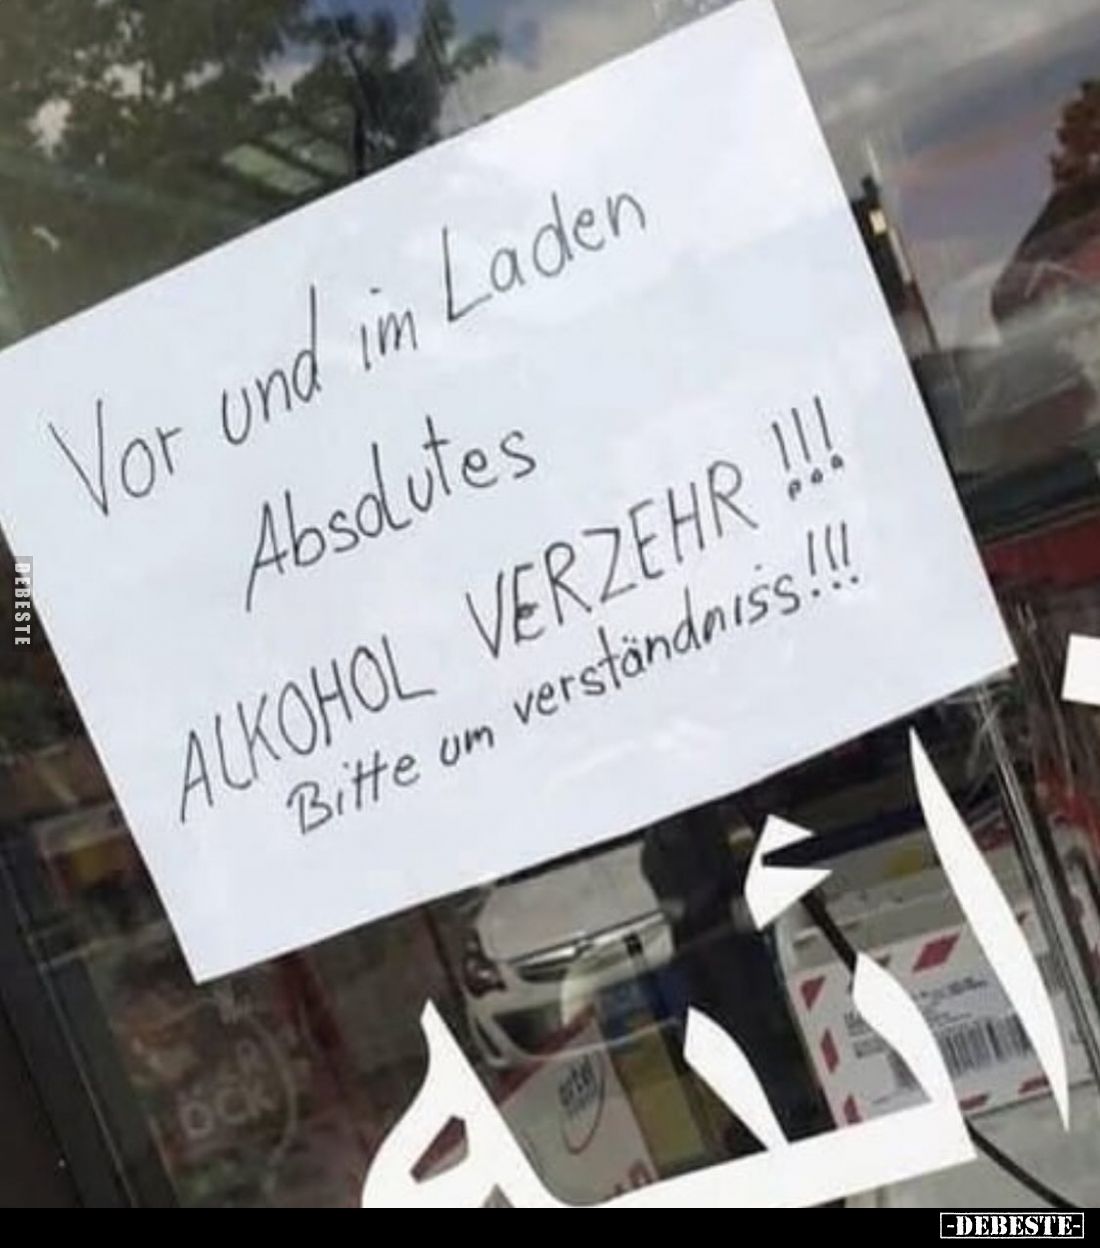 Vor und im Laden
Absolutes
ALKOHOL VERZEHR !!!
Bitte um verständniss!!!
DEBESTE
-DEBESTE-